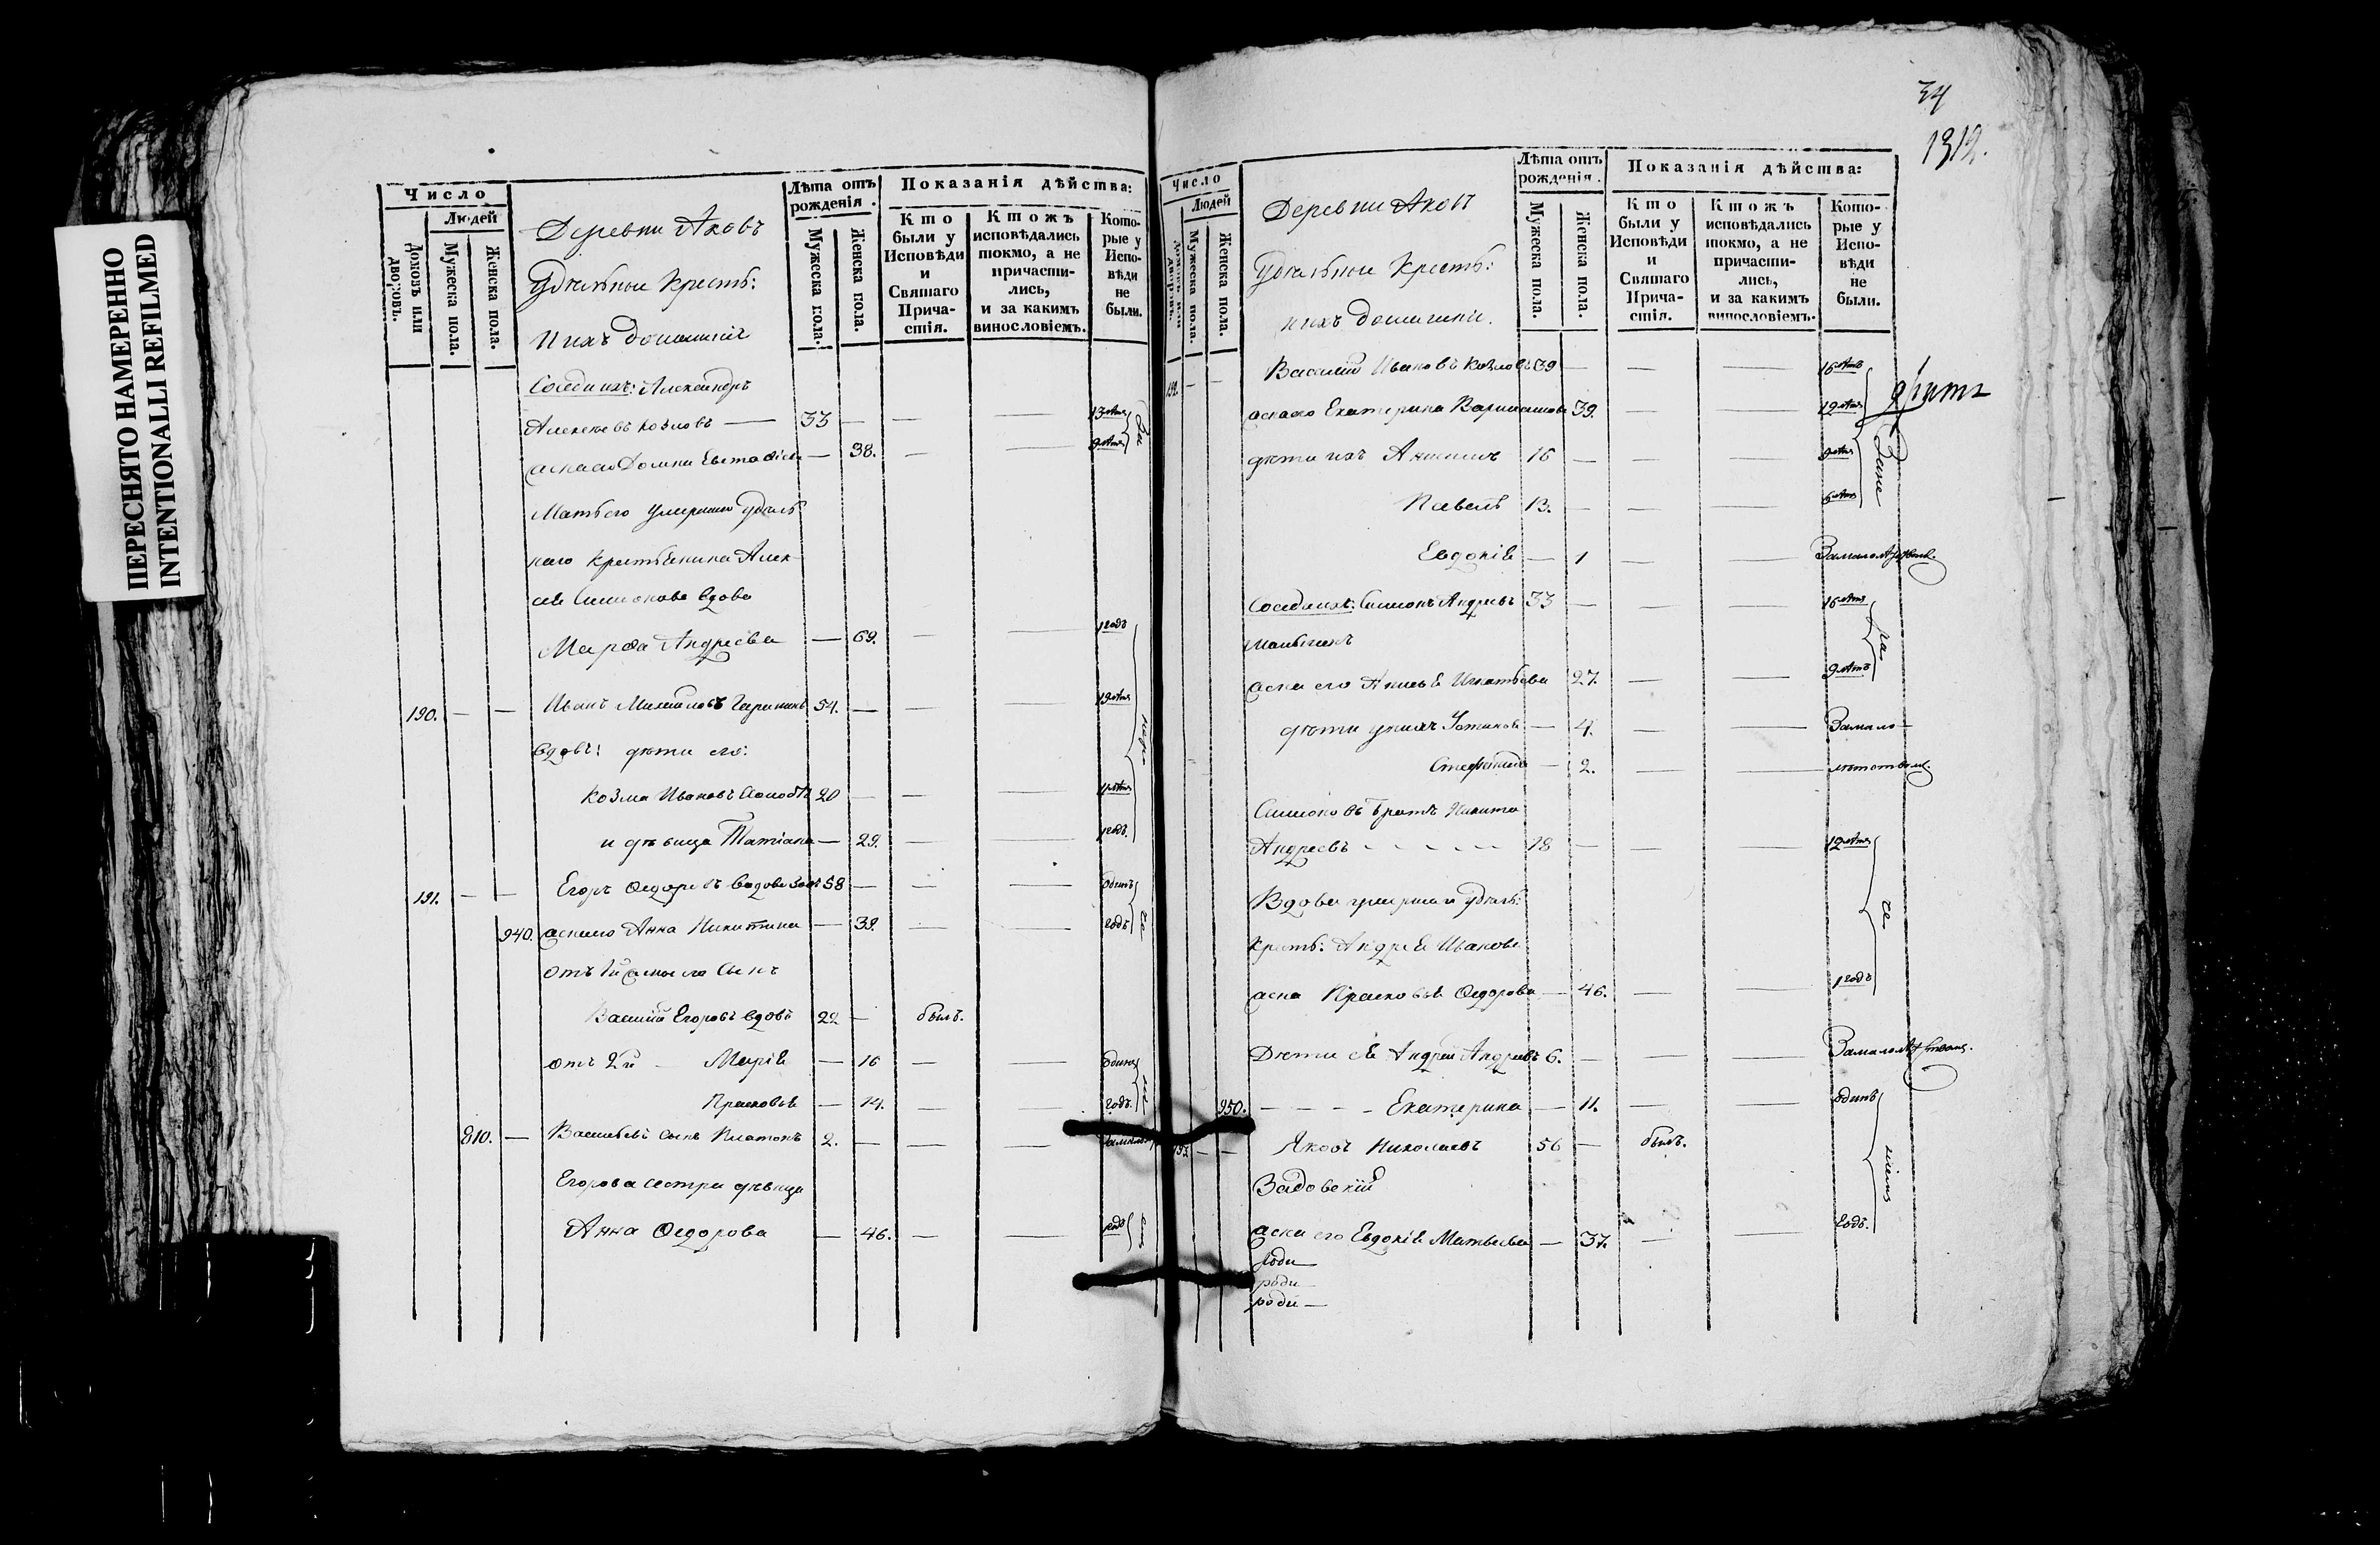 ПЕРЕСНЯТО НАМЕРЕННО
INTENTIONALLI REFILMED
Число
Людей
Домовъ или дворовъ.
Мужеска пола.
Женска пола.
Деревни Аковъ
Удѣльные Кресть:
и ихъ домашніе
Лѣта отъ рожденія.
Мужеска пола.
Женска пола.
Показанія дѣйства:
Кто были у Исповѣди и Святаго Причастія.
Ктожъ исповѣдались токмо, а не причастились, и за какимъ винословіемъ.
Которые у Исповѣди не были.
Соседи ихъ: Александръ
Алексеевъ Козловъ — 33 — — — 13 лѣтъ
жена его Домна — 38. — — 9 лѣтъ
Мать его умершаго удѣль
наго крестьянина Алек
сѣя Симіонова вдова
Марѳа Андреева — 69. — — 1 годъ
190. — — Иванъ Михайловъ 54. — — —
вдовъ: дѣти его:
Козма Ивановъ 20 — — —
и дѣвица Татіана — 29. — — 1 годъ
191. — — Егоръ Ѳедоровъ 58 — — — Одинъ
940. жена его Анна Никитина — 39. — — годъ
отъ 1й жены его Сынъ
Василій Егоровъ вдовъ 22 — былъ.
отъ 2й — Марія — 16 — — Одинъ
Прасковья — 14. — — годъ.
810. — Васильевъ сынъ Платонъ 2. — — —
Егорова сестра дѣвица
Анна Ѳедорова — 46. — — годъ
34
1312.
Число
Людей
Домовъ или дворовъ.
Мужеска пола.
Женска пола.
Деревни Аковъ
Удѣльные Кресть:
и ихъ домашніе.
Лѣта отъ рожденія.
Мужеска пола.
Женска пола.
Показанія дѣйства:
Кто были у Исповѣди и Святаго Причастія.
Ктожъ исповѣдались токмо, а не причастились, и за какимъ винословіемъ.
Которые у Исповѣди не были.
192. — — Василій Ивановъ Козловъ 39 — — — 16 лѣтъ
жена его Екатерина 39. — — 12 лѣтъ
дѣти ихъ Анисимъ 16 — — — 9 лѣтъ
Павелъ 13. — — — 6 лѣтъ
Евдокія — 1 — — За малолѣтствомъ.
Соседи ихъ: Симіонъ Андреевъ 33 — — — 16 лѣтъ
жена его Игнатьева 27. — — 9 лѣтъ
дѣти у нихъ Устинья — 4. — — За мало-
Стефанида — 2. — — лѣтствомъ.
Симіоновъ братъ Никита
Андреевъ - - - - - 18 — — — 12 лѣтъ
Вдова умершаго удѣль:
кресть: Андрея Иванова
жена Прасковья Ѳедорова — 46. — — 1 годъ
Дѣти ея Андрей Андреевъ 6. — — — За малолѣтствомъ.
950. - - - - Екатерина — 11. — — Одинъ
193. — — Яковъ Николаевъ 56 — былъ.
Задовскій
жена его Евдокія Матвеева — 37. — — годъ.
роди
роди
роди —